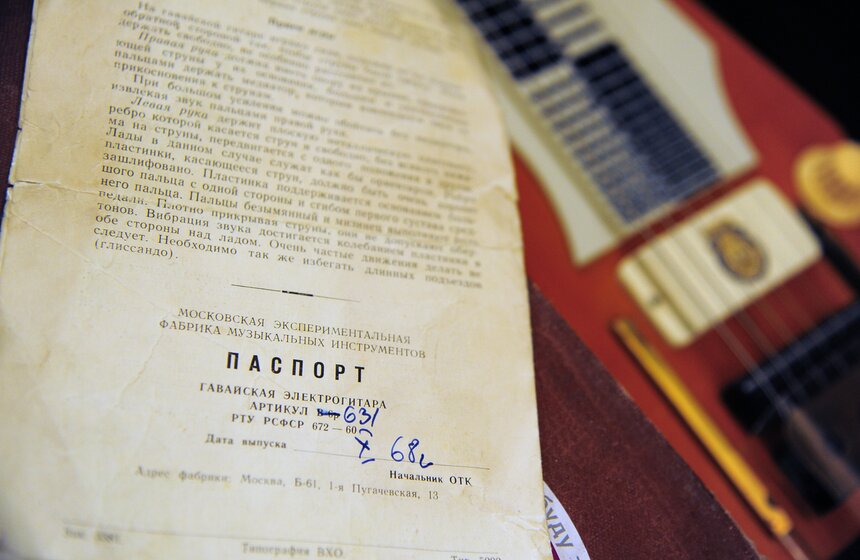 На гавайской
обратной стороной
держать свободно, не
Правая рука должна иметь
ющей струны у их основания.
пальцами держать медиатор, которым
прикосновения к струнам.
При большом усилении можно обойтись без медиатора,
извлекая звук пальцами правой руки.
Левая рука держит плоскую металлическую
ребро которой касается струн и свободно, без
ма на струны, передвигается с одного положения в другое.
Лады в данном случае служат как бы ориентиром. Ребро
пластинки, касающееся струн, должно быть очень хорошо
зашлифовано. Пластинка поддерживается основанием боль-
шого пальца с одной стороны и сгибом первого сустава сред-
него пальца. Пальцы безымянный и мизинец выполняют роль
педали. Плотно прикрывая струны, они не допускают обер-
тонов. Вибрация звука достигается колебанием пластинки в
обе стороны над ладом. Очень частые движения делать не
следует. Необходимо так же избегать длинных подъездов
(глиссандо).
МОСКОВСКАЯ ЭКСПЕРИМЕНТАЛЬНАЯ
ФАБРИКА МУЗЫКАЛЬНЫХ ИНСТРУМЕНТОВ
ПАСПОРТ
ГАВАЙСКАЯ ЭЛЕКТРОГИТАРА
АРТИКУЛ 631
РТУ РСФСР 672 — 60
Дата выпуска X 68г
Начальник ОТК
Адрес фабрики: Москва, Б-61, 1-я Пугачевская, 13
Типография ВХО.
буду